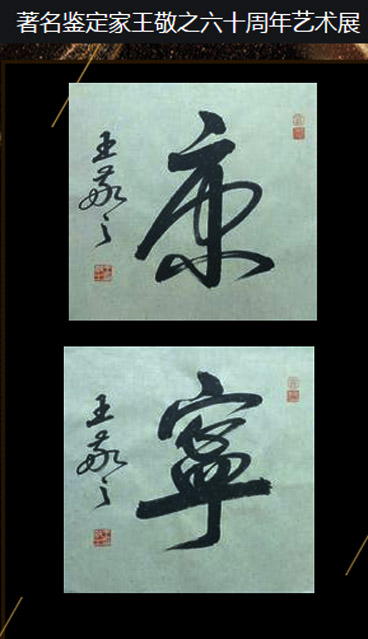 著名鉴定家王敬之六十周年艺术展
康
王敬之
寧
王敬之